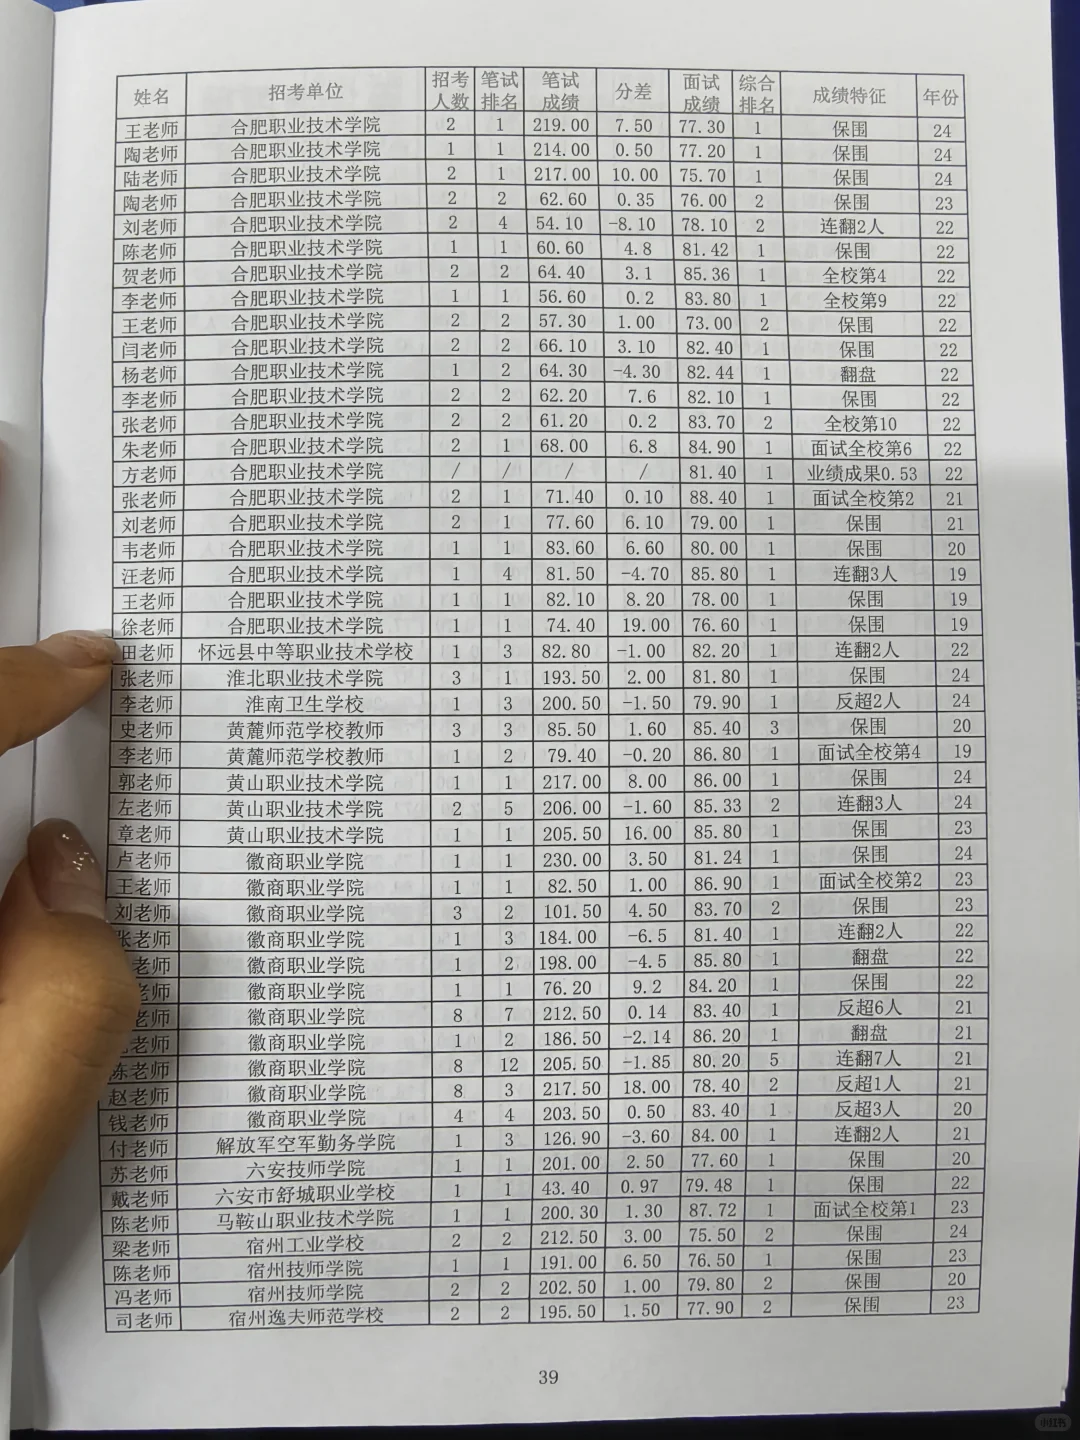 姓名 招考单位 招考人数 笔试排名 笔试成绩 分差 面试成绩 综合排名 成绩特征 年份
王老师 合肥职业技术学院 2 1 219.00 7.50 77.30 1 保围 24
陶老师 合肥职业技术学院 1 1 214.00 0.50 77.20 1 保围 24
陆老师 合肥职业技术学院 2 1 217.00 10.00 75.70 1 保围 24
陶老师 合肥职业技术学院 2 2 62.60 0.35 76.00 2 保围 23
刘老师 合肥职业技术学院 2 4 54.10 -8.10 78.10 2 连翻2人 22
陈老师 合肥职业技术学院 1 1 60.60 4.8 81.42 1 保围 22
贺老师 合肥职业技术学院 2 2 64.40 3.1 85.36 1 全校第4 22
李老师 合肥职业技术学院 1 1 56.60 0.2 83.80 1 全校第9 22
王老师 合肥职业技术学院 2 2 57.30 1.00 73.00 2 保围 22
闫老师 合肥职业技术学院 2 2 66.10 3.10 82.40 1 保围 22
杨老师 合肥职业技术学院 1 2 64.30 -4.30 82.44 1 翻盘 22
李老师 合肥职业技术学院 2 2 62.20 7.6 82.10 1 保围 22
张老师 合肥职业技术学院 2 2 61.20 0.2 83.70 2 全校第10 22
朱老师 合肥职业技术学院 2 1 68.00 6.8 84.90 1 面试全校第6 22
方老师 合肥职业技术学院 / / / / 81.40 1 业绩成果0.53 22
张老师 合肥职业技术学院 2 1 71.40 0.10 88.40 1 面试全校第2 21
刘老师 合肥职业技术学院 2 1 77.60 6.10 79.00 1 保围 21
韦老师 合肥职业技术学院 1 1 83.60 6.60 80.00 1 保围 20
汪老师 合肥职业技术学院 1 4 81.50 -4.70 85.80 1 连翻3人 19
王老师 合肥职业技术学院 1 1 82.10 8.20 78.00 1 保围 19
徐老师 合肥职业技术学院 1 1 74.40 19.00 76.60 1 保围 19
田老师 怀远县中等职业技术学校 1 3 82.80 -1.00 82.20 1 连翻2人 22
张老师 淮北职业技术学院 3 1 193.50 2.00 81.80 1 保围 24
李老师 淮南卫生学校 1 3 200.50 -1.50 79.90 1 反超2人 24
史老师 黄麓师范学校教师 3 3 85.50 1.60 85.40 3 保围 20
李老师 黄麓师范学校教师 1 2 79.40 -0.20 86.80 1 面试全校第4 19
郭老师 黄山职业技术学院 1 1 217.00 8.00 86.00 1 保围 24
左老师 黄山职业技术学院 2 5 206.00 -1.60 85.33 2 连翻3人 24
章老师 黄山职业技术学院 1 1 205.50 16.00 85.80 1 保围 23
卢老师 徽商职业学院 1 1 230.00 3.50 81.24 1 保围 24
王老师 徽商职业学院 1 1 82.50 1.00 86.90 1 面试全校第2 23
刘老师 徽商职业学院 3 2 101.50 4.50 83.70 2 保围 23
张老师 徽商职业学院 1 3 184.00 -6.5 81.40 1 连翻2人 22
老师 徽商职业学院 1 2 198.00 -4.5 85.80 1 翻盘 22
老师 徽商职业学院 1 1 76.20 9.2 84.20 1 保围 22
老师 徽商职业学院 8 7 212.50 0.14 83.40 1 反超6人 21
老师 徽商职业学院 1 2 186.50 -2.14 86.20 1 翻盘 21
陈老师 徽商职业学院 8 12 205.50 -1.85 80.20 5 连翻7人 21
赵老师 徽商职业学院 8 3 217.50 18.00 78.40 2 反超1人 21
钱老师 徽商职业学院 4 4 203.50 0.50 83.40 1 反超3人 20
付老师 解放军空军勤务学院 1 3 126.90 -3.60 84.00 1 连翻2人 21
苏老师 六安技师学院 1 1 201.00 2.50 77.60 1 保围 20
戴老师 六安市舒城职业学校 1 1 43.40 0.97 79.48 1 保围 22
陈老师 马鞍山职业技术学院 1 1 200.30 1.30 87.72 1 面试全校第1 23
梁老师 宿州工业学校 2 2 212.50 3.00 75.50 2 保围 24
陈老师 宿州技师学院 1 1 191.00 6.50 76.50 1 保围 23
冯老师 宿州技师学院 2 2 202.50 1.00 79.80 2 保围 20
司老师 宿州逸夫师范学校 2 2 195.50 1.50 77.90 2 保围 23
39
小红书